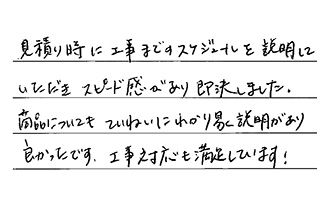 見積り時に工事までのスケジュールを説明して
いただき スピード感があり即決しました。
商品についても ていねいにわかり易く説明があり
良かったです。工事対応も満足しています!